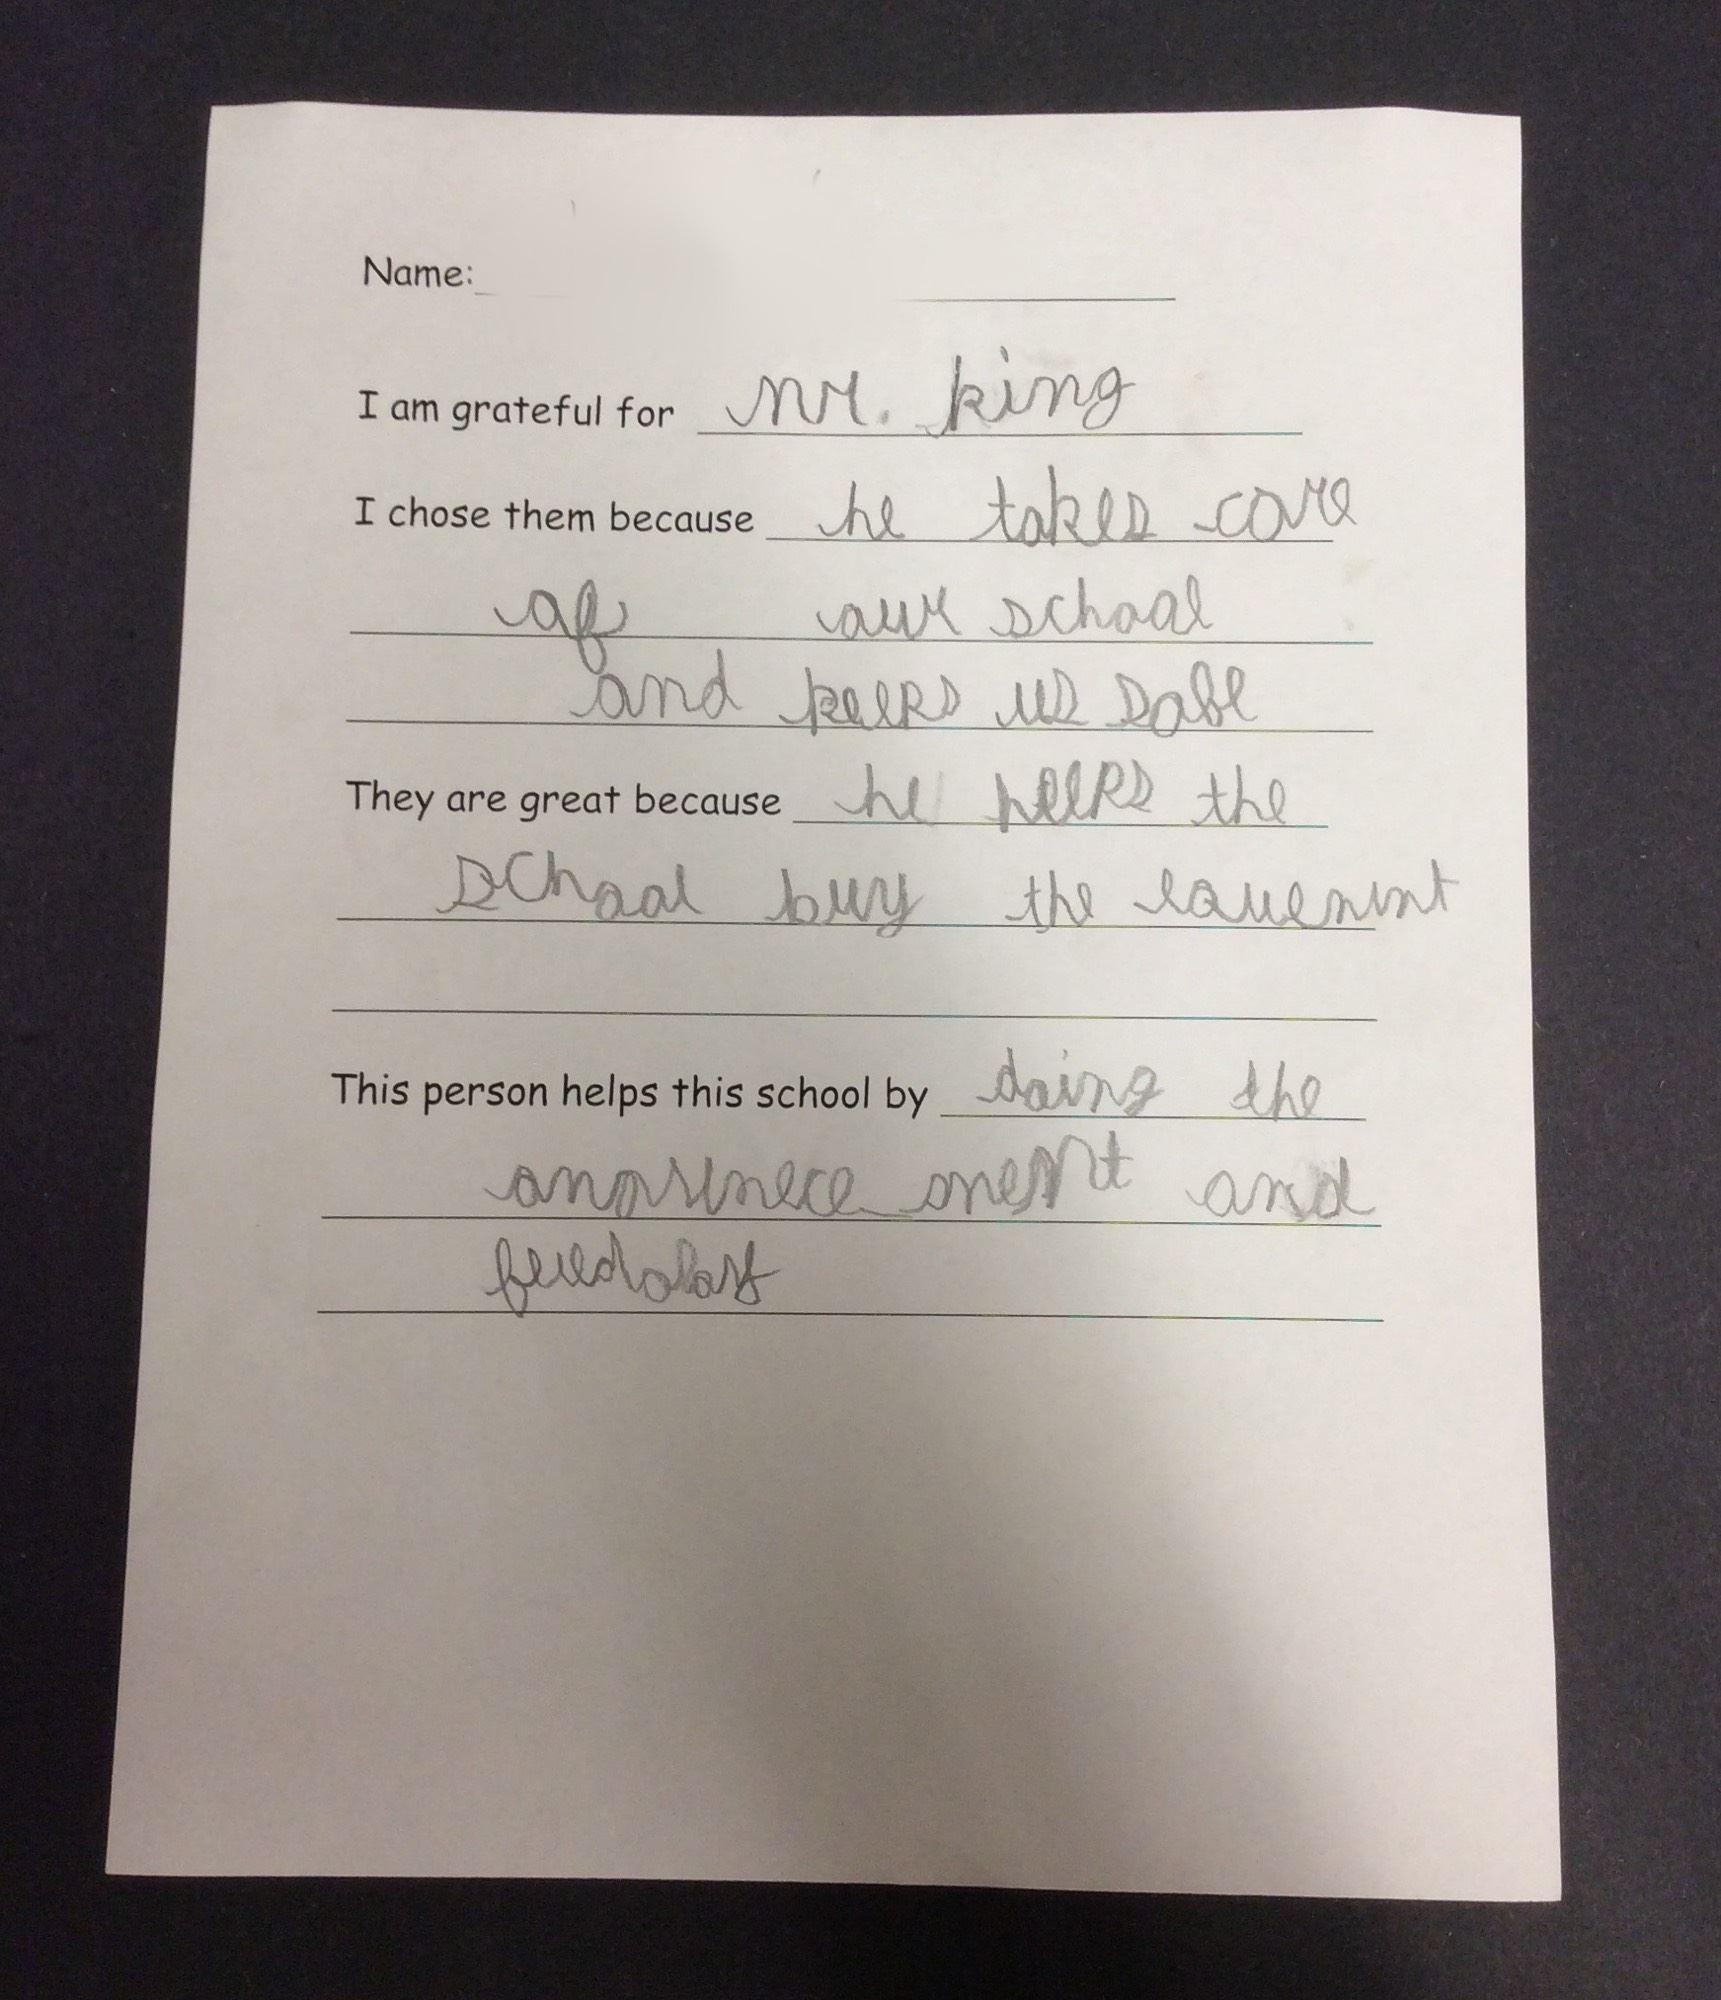 Name:
I am grateful for Mr. king
I chose them because he takes care
of our school
and keeps us safe
They are great because he helps the
school buy the
This person helps this school by doing the
and